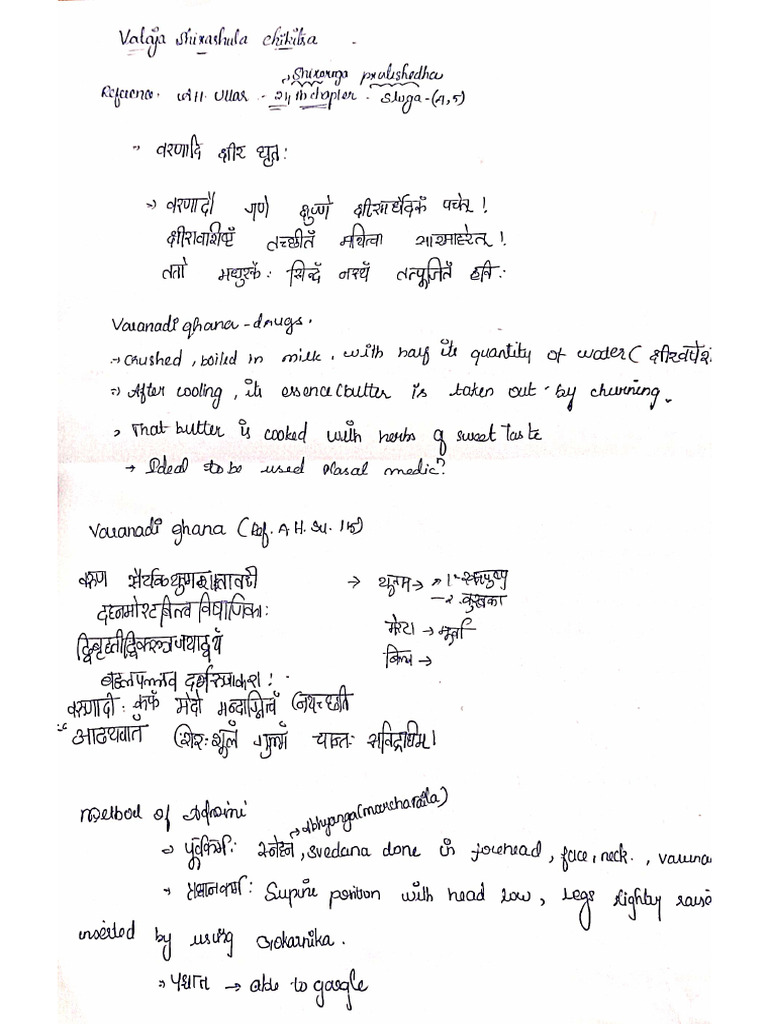 Vataja Shirashula Chikitsa .
→ Shiroroga pratishedha
Reference. Uttar - 24th chapter. Sloga - (4,5)
→ वरणादि क्षीर घृत :
→ वरणादौ गणे क्षुण्णे क्षीरमर्धोदकं पचेत् !
क्षीरावशिष्टं तच्छीतं मथित्वा सारमाहरेत् !
ततो मधुरकैः सिद्धं नस्यं तत्पूजितं हविः
Varanadi ghana - drugs.
→ Crushed, boiled in milk, with half its quantity of water (
→ After cooling, its essence (butter is taken out by churning.
→ That butter is cooked with herbs of sweet taste
→ Ideal to be used Nasal medic?
Varanadi ghana (Ref. A H. Su. 15)
वरुण सैर्यक शतावरी →
दहनमोरटबिल्व विषाणिका:
द्विबृहती द्विकरञ्ज जयाद्वयं मोरटा → मूर्वा
बहलपल्लव दर्भ रुजाकरा ! बिल्व →
वरणादी : कफं मेदो मन्दाग्नित्वं नियच्छती
आढयवातं शिरःशूलं गुल्मं चान्तः सविद्रधिम् !
Method of Admini
→ Abhyanga
→ पूर्वकर्म : स्नेहन, svedana done in forehead, face, neck. ,
→ प्रधानकर्म : Supine position with head low, legs slighty raise
inserted by using Gokarnika.
→ पश्चात → able to gargle